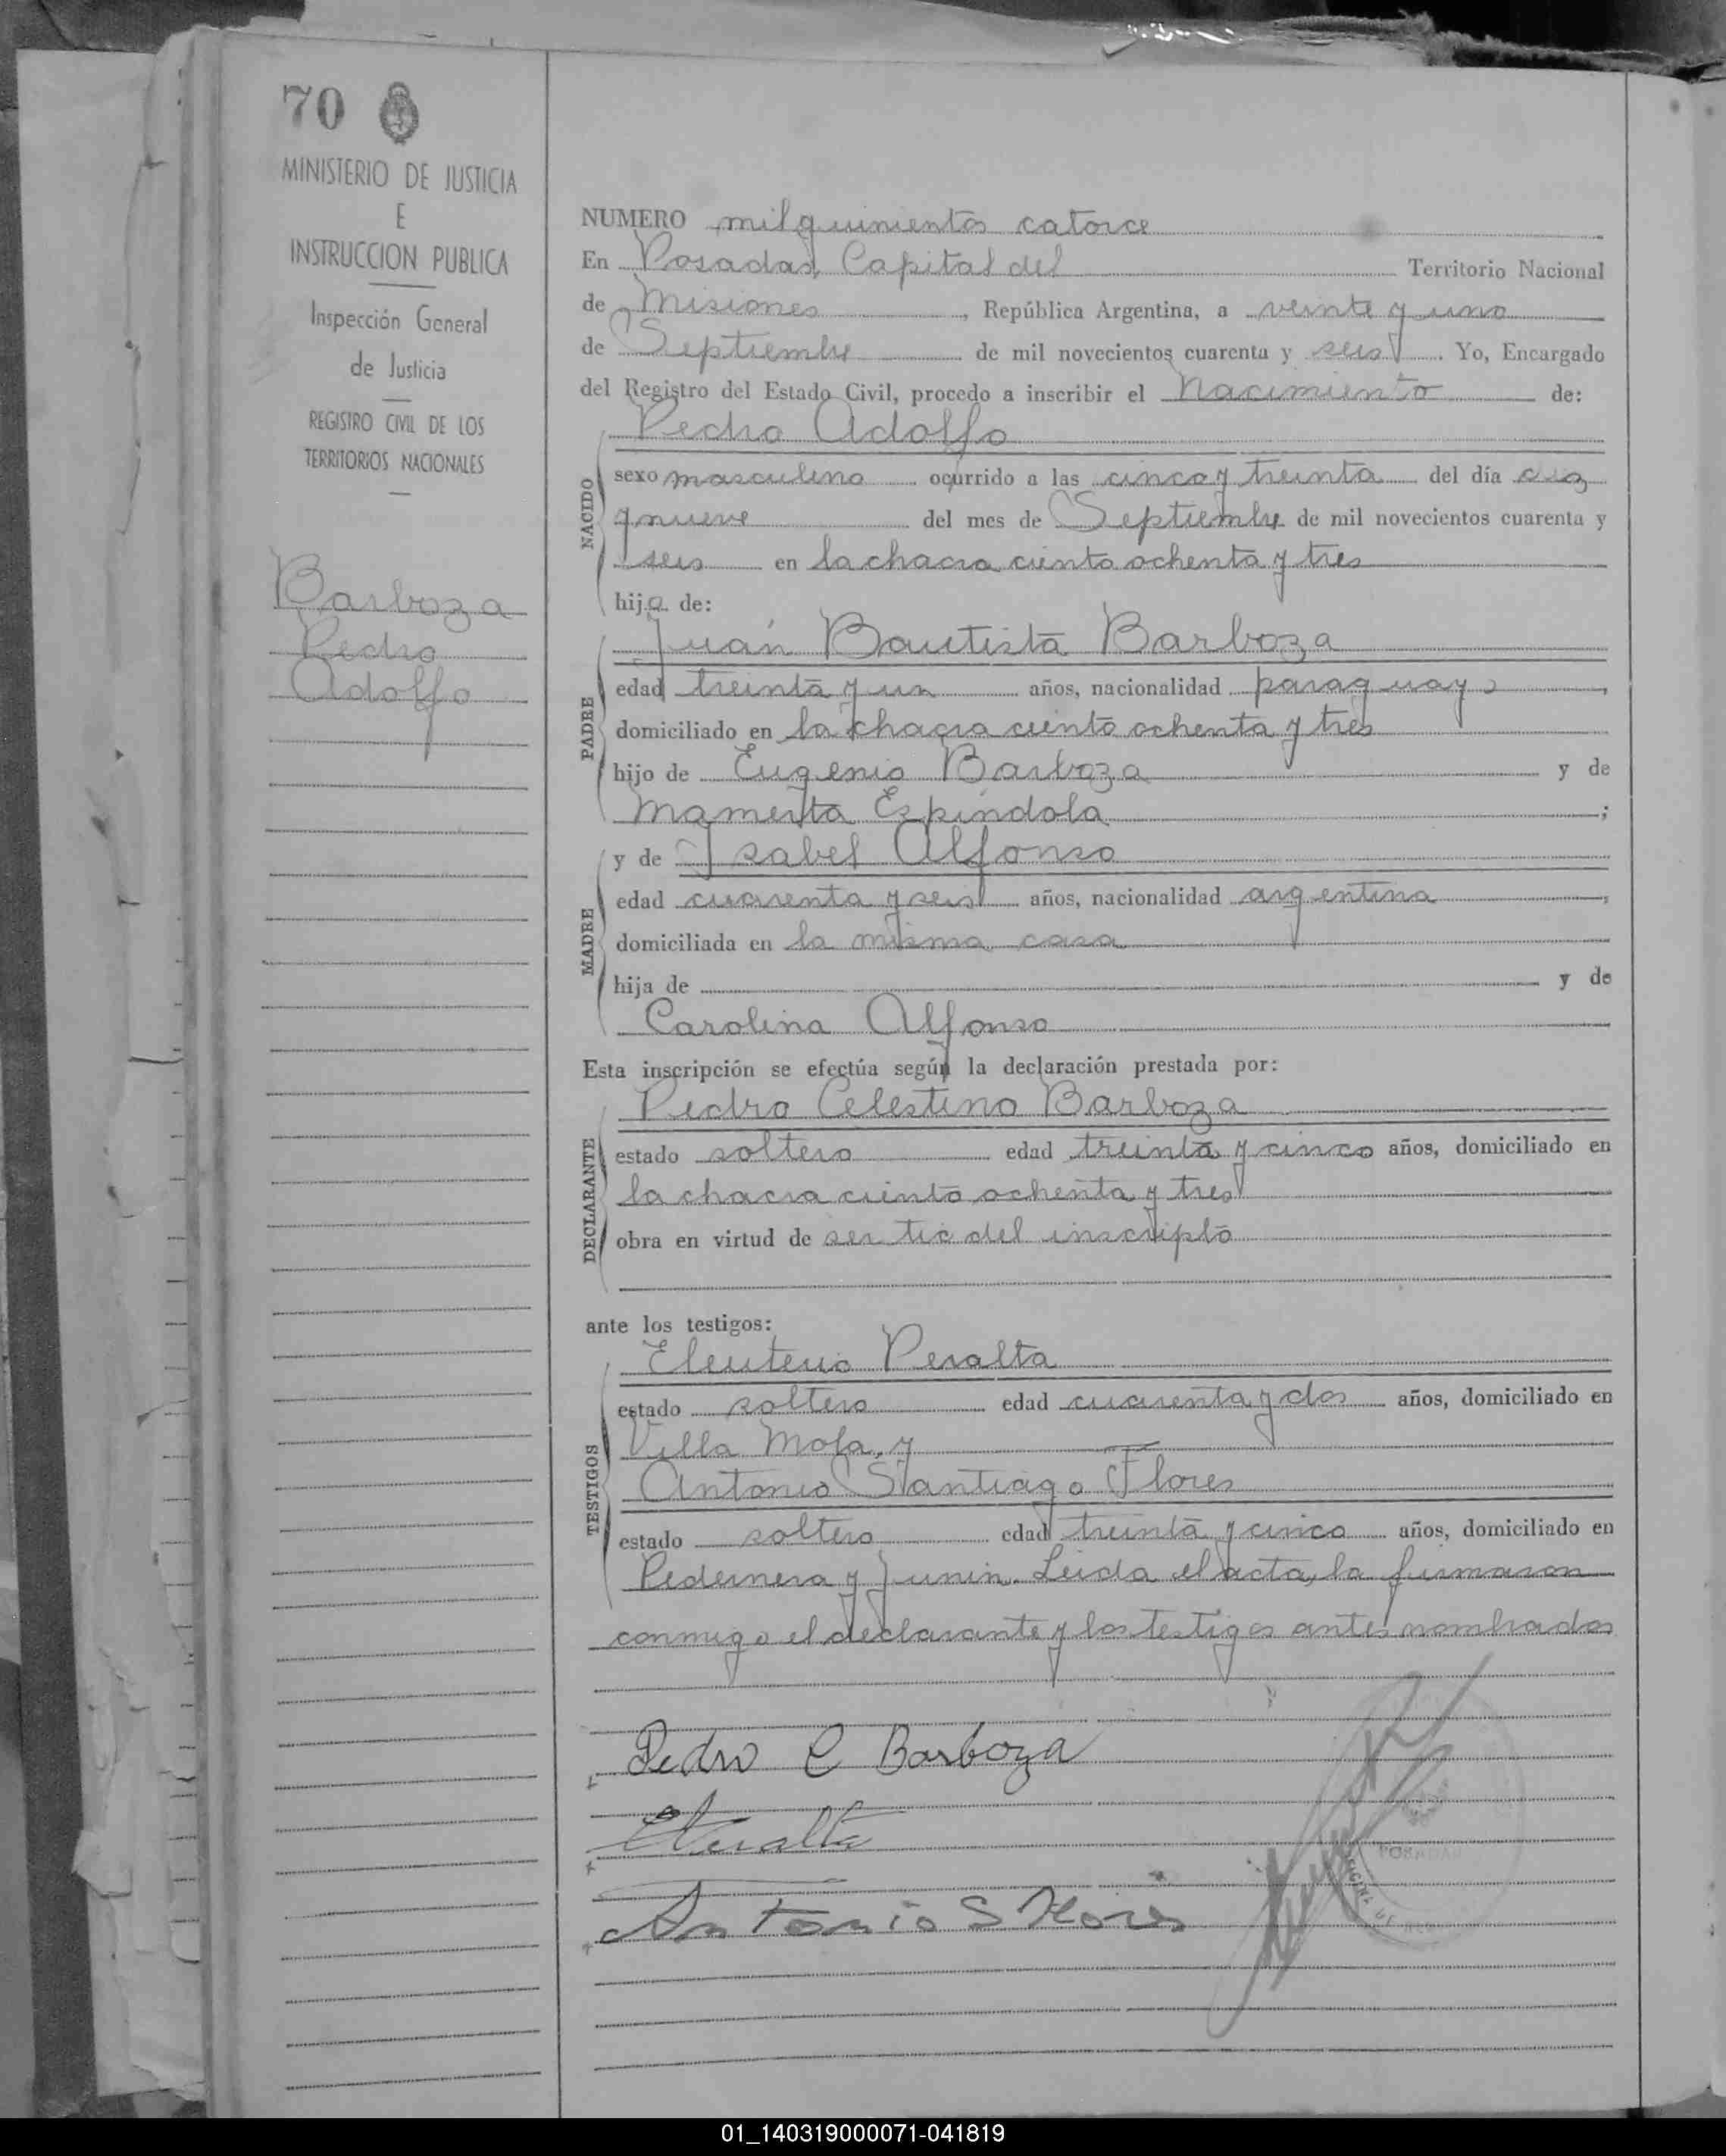 70
MINISTERIO DE JUSTICIA
E
INSTRUCCION PUBLICA
Inspección General
de Justicia
REGISTRO CIVIL DE LOS
TERRITORIOS NACIONALES
Barboza
Pedro
Adolfo
NUMERO mil quinientos catorce
En Posadas, Capital del Territorio Nacional
de Misiones, República Argentina, a veinte y uno
de Septiembre de mil novecientos cuarenta y seis. Yo, Encargado
del Registro del Estado Civil, procedo a inscribir el Nacimiento de:
NACIDO
Pedro Adolfo
sexo masculino ocurrido a las cinco y treinta del día diez
y nueve del mes de Septiembre de mil novecientos cuarenta y
seis en la chacra ciento ochenta y tres
hijo de:
PADRE
Juan Bautista Barboza
edad treinta y un años, nacionalidad paraguayo,
domiciliado en la chacra ciento ochenta y tres
hijo de Eugenio Barboza y de
Mamerta Espíndola;
MADRE
y de Isabel Alfonso
edad cuarenta y seis años, nacionalidad argentina,
domiciliada en la misma casa
hija de y de
Carolina Alfonso
Esta inscripción se efectúa según la declaración prestada por:
DECLARANTE
Pedro Celestino Barboza
estado soltero edad treinta y cinco años, domiciliado en
la chacra ciento ochenta y tres
obra en virtud de ser tio del inscripto
ante los testigos:
TESTIGOS
Eleuterio Peralta
estado soltero edad cuarenta y dos años, domiciliado en
Villa Mola, y
Antonio Santiago Flores
estado soltero edad treinta y cinco años, domiciliado en
Pedernera y Junin. Leida el acta, la firmaron
conmigo el declarante y los testigos antes nombrados
Pedro C Barboza
EPeralta
Antonio S Flores
POSADAS
01_140319000071-041819